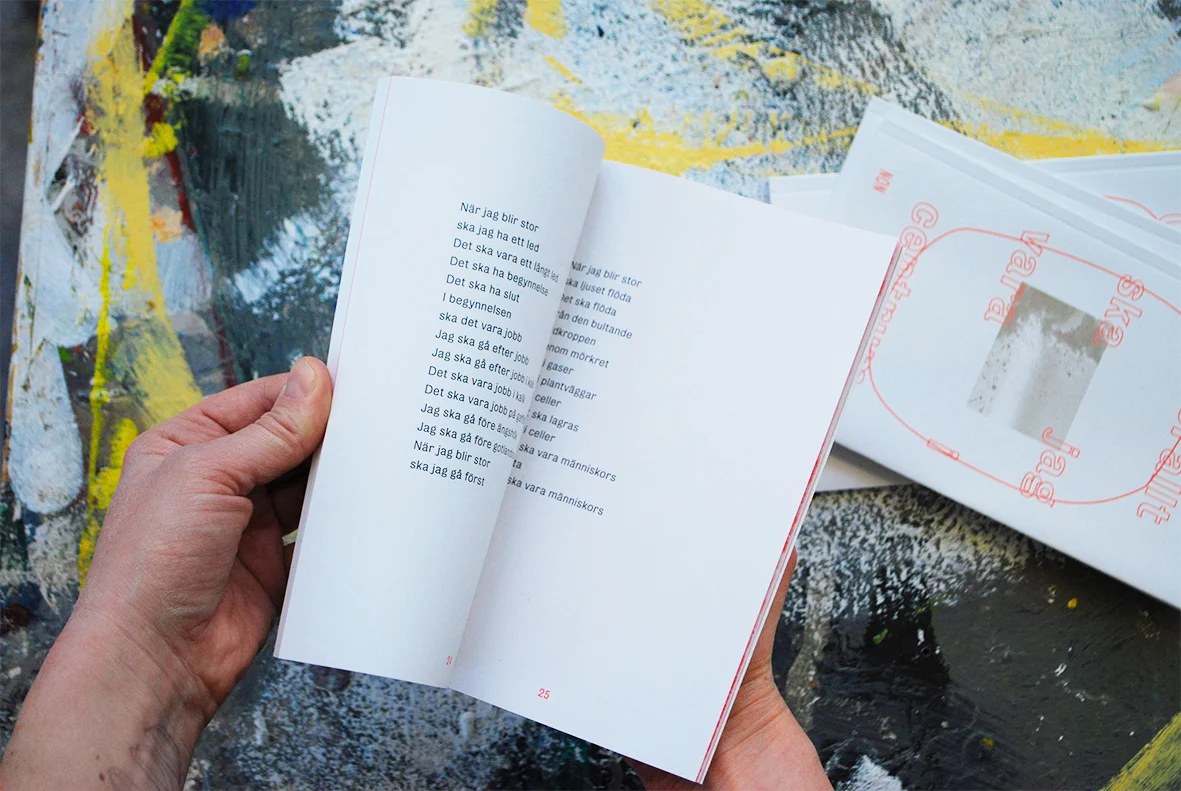 När jag blir stor
ska jag ha ett led
Det ska vara ett långt led
Det ska ha begynnelse
Det ska ha slut
I begynnelsen
ska det vara jobb
Jag ska gå efter jobb
Jag ska gå efter jobb i kalk
Det ska vara jobb i kalk
Det ska vara jobb på
Jag ska gå före
Jag ska gå före
När jag blir stor
ska jag gå först
24
När jag blir stor
ska ljuset flöda
Det ska flöda
från den bultande
mörkret
gaser
plantväggar
celler
ska lagras
celler
ska vara människors
ska vara människors
25
NON
centrum
vara
ska
jag
allt